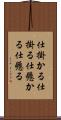 仕掛かる仕
掛る仕懸か
る仕懸る